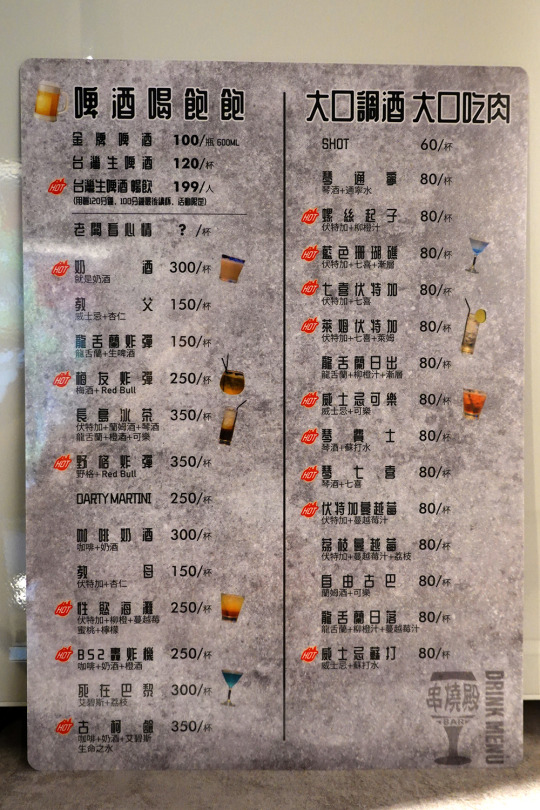 啤酒喝飽飽
金牌啤酒 100/瓶 600ML
台灣生啤酒 120/杯
HOT 台灣生啤酒暢飲 199/人
(用餐120分鐘, 100分鐘最後續杯, 活動限定)
老闆看心情 ? /杯
HOT 奶酒 300/杯
就是奶酒
教父 150/杯
威士忌+杏仁
龍舌蘭炸彈 150/杯
龍舌蘭+生啤酒
HOT 梅友炸彈 250/杯
梅酒+Red Bull
長島冰茶 350/杯
伏特加+蘭姆酒+琴酒
龍舌蘭+橙酒+可樂
HOT 野格炸彈 350/杯
野格+Red Bull
DARTY MARTINI 250/杯
咖啡奶酒 300/杯
咖啡+奶酒
教母 150/杯
伏特加+杏仁
HOT 性慾海灘 250/杯
伏特加+柳橙+蔓越莓
蜜桃+檸檬
HOT B52轟炸機 250/杯
咖啡+奶酒+橙酒
死在巴黎 300/杯
艾碧斯+荔枝
HOT 古柯鹼 350/杯
咖啡+奶酒+艾碧斯
生命之水
大口調酒 大口吃肉
SHOT 60/杯
琴通寧 80/杯
琴酒+通寧水
HOT 螺絲起子 80/杯
伏特加+柳橙汁
HOT 藍色珊瑚礁 80/杯
伏特加+七喜+漸層
HOT 七喜伏特加 80/杯
伏特加+七喜
HOT 萊姆伏特加 80/杯
伏特加+七喜+萊姆
龍舌蘭日出 80/杯
龍舌蘭+柳橙汁+漸層
HOT 威士忌可樂 80/杯
威士忌+可樂
HOT 琴費士 80/杯
琴酒+蘇打水
HOT 琴七喜 80/杯
琴酒+七喜
HOT 伏特加蔓越莓 80/杯
伏特加+蔓越莓汁
荔枝蔓越莓 80/杯
伏特加+蔓越莓汁+荔枝
自由古巴 80/杯
蘭姆酒+可樂
龍舌蘭日落 80/杯
龍舌蘭+柳橙汁+蔓越莓汁
HOT 威士忌蘇打 80/杯
威士忌+蘇打水
串燒殿
BAR
DRINK MENU